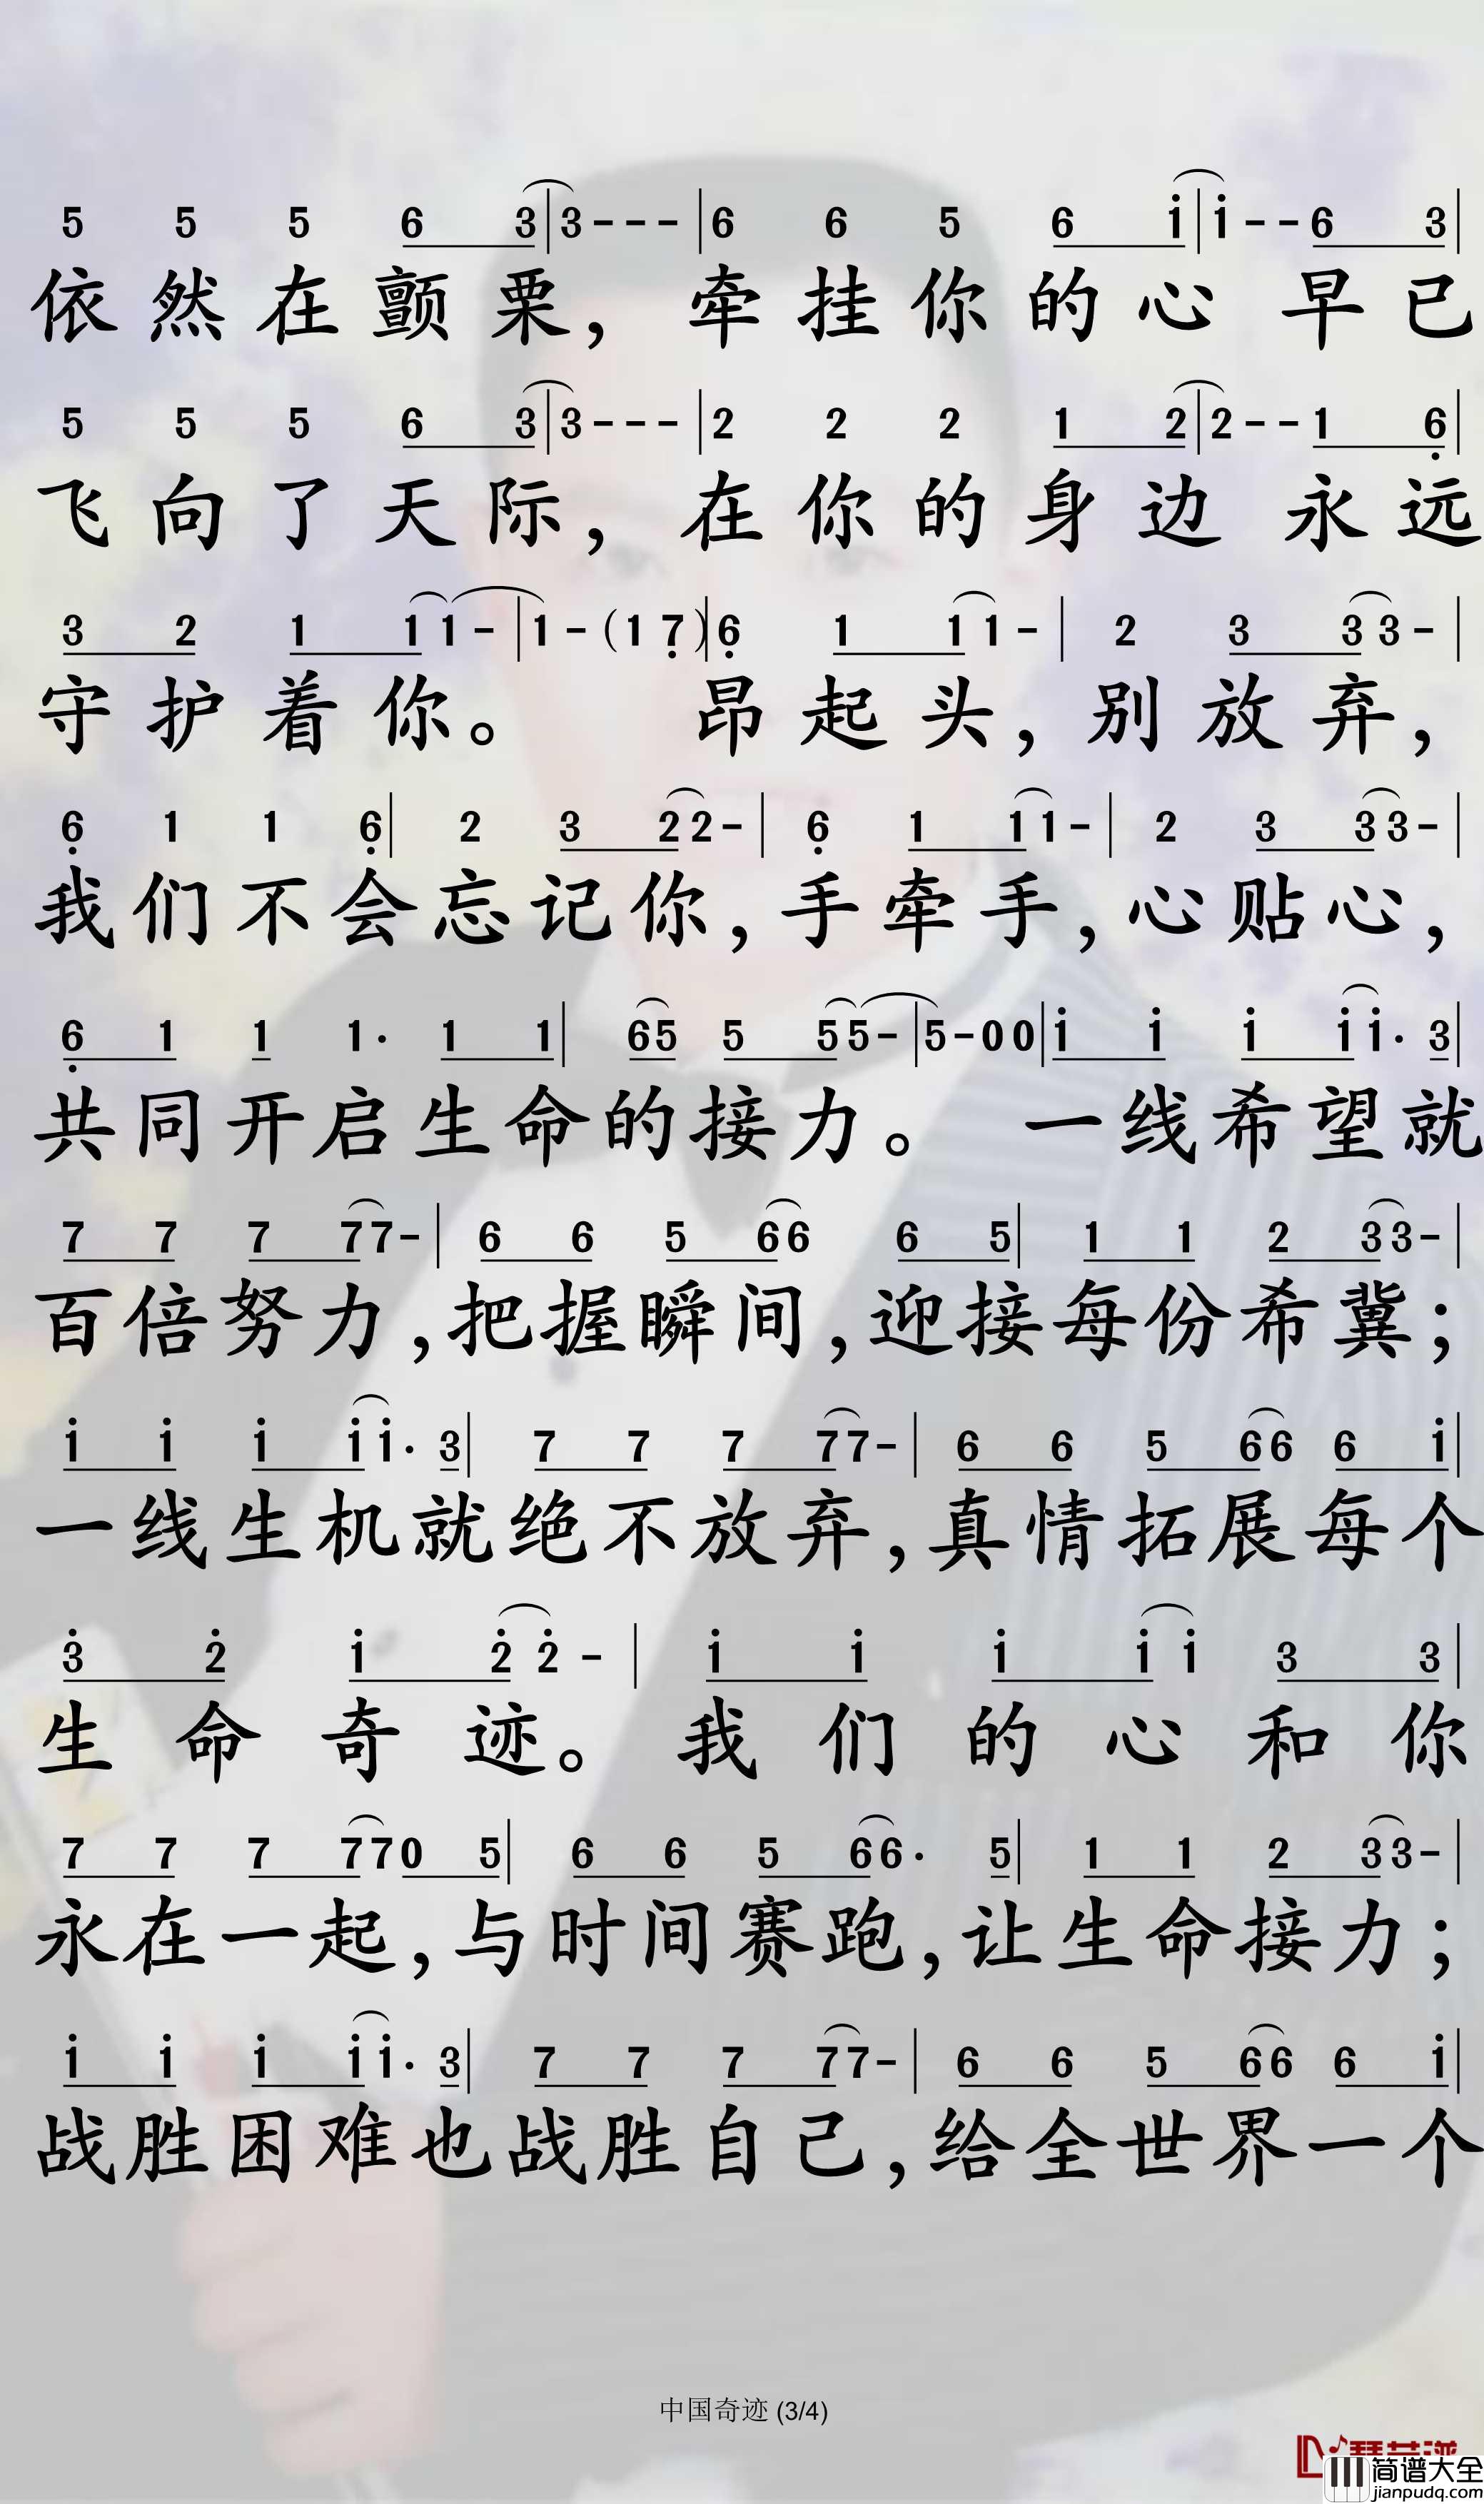 5 5 5 6 3|3---|6 6 5 6 i|i--6 3|
依然在颤栗，牵挂你的心 早已
5 5 5 6 3|3---|2 2 2 1 2|2--1 6̣|
飞向了天际，在你的身边 永远
3 2 1 1 1-|1-(1 7̣)|6̣ 1 1 1-|2 3 3 3-|
守护着你。 昂起头，别放弃，
6̣ 1 1 6̣|2 3 2 2-|6̣ 1 1 1-|2 3 3 3-|
我们不会忘记你，手牵手，心贴心，
6̣ 1 1 1· 1 1|65 5 5 5-|5-00|i i i i i· 3|
共同开启生命的接力。 一线希望就
7 7 7 7 7-|6 6 5 6 6 6 5|1 1 2 3 3-|
百倍努力，把握瞬间，迎接每份希冀；
i i i i i· 3|7 7 7 7 7-|6 6 5 6 6 6 i|
一线生机就绝不放弃，真情拓展每个
3̇ 2̇ i 2̇ 2̇ -|i i i i i 3 3|
生命奇迹。我们的心和你
7 7 7 7 7 0 5|6 6 5 6 6· 5|1 1 2 3 3-|
永在一起，与时间赛跑，让生命接力；
i i i i i· 3|7 7 7 7 7-|6 6 5 6 6 6 i|
战胜困难也战胜自己，给全世界一个
中国奇迹 (3/4)
简谱大全
jianpudq.com